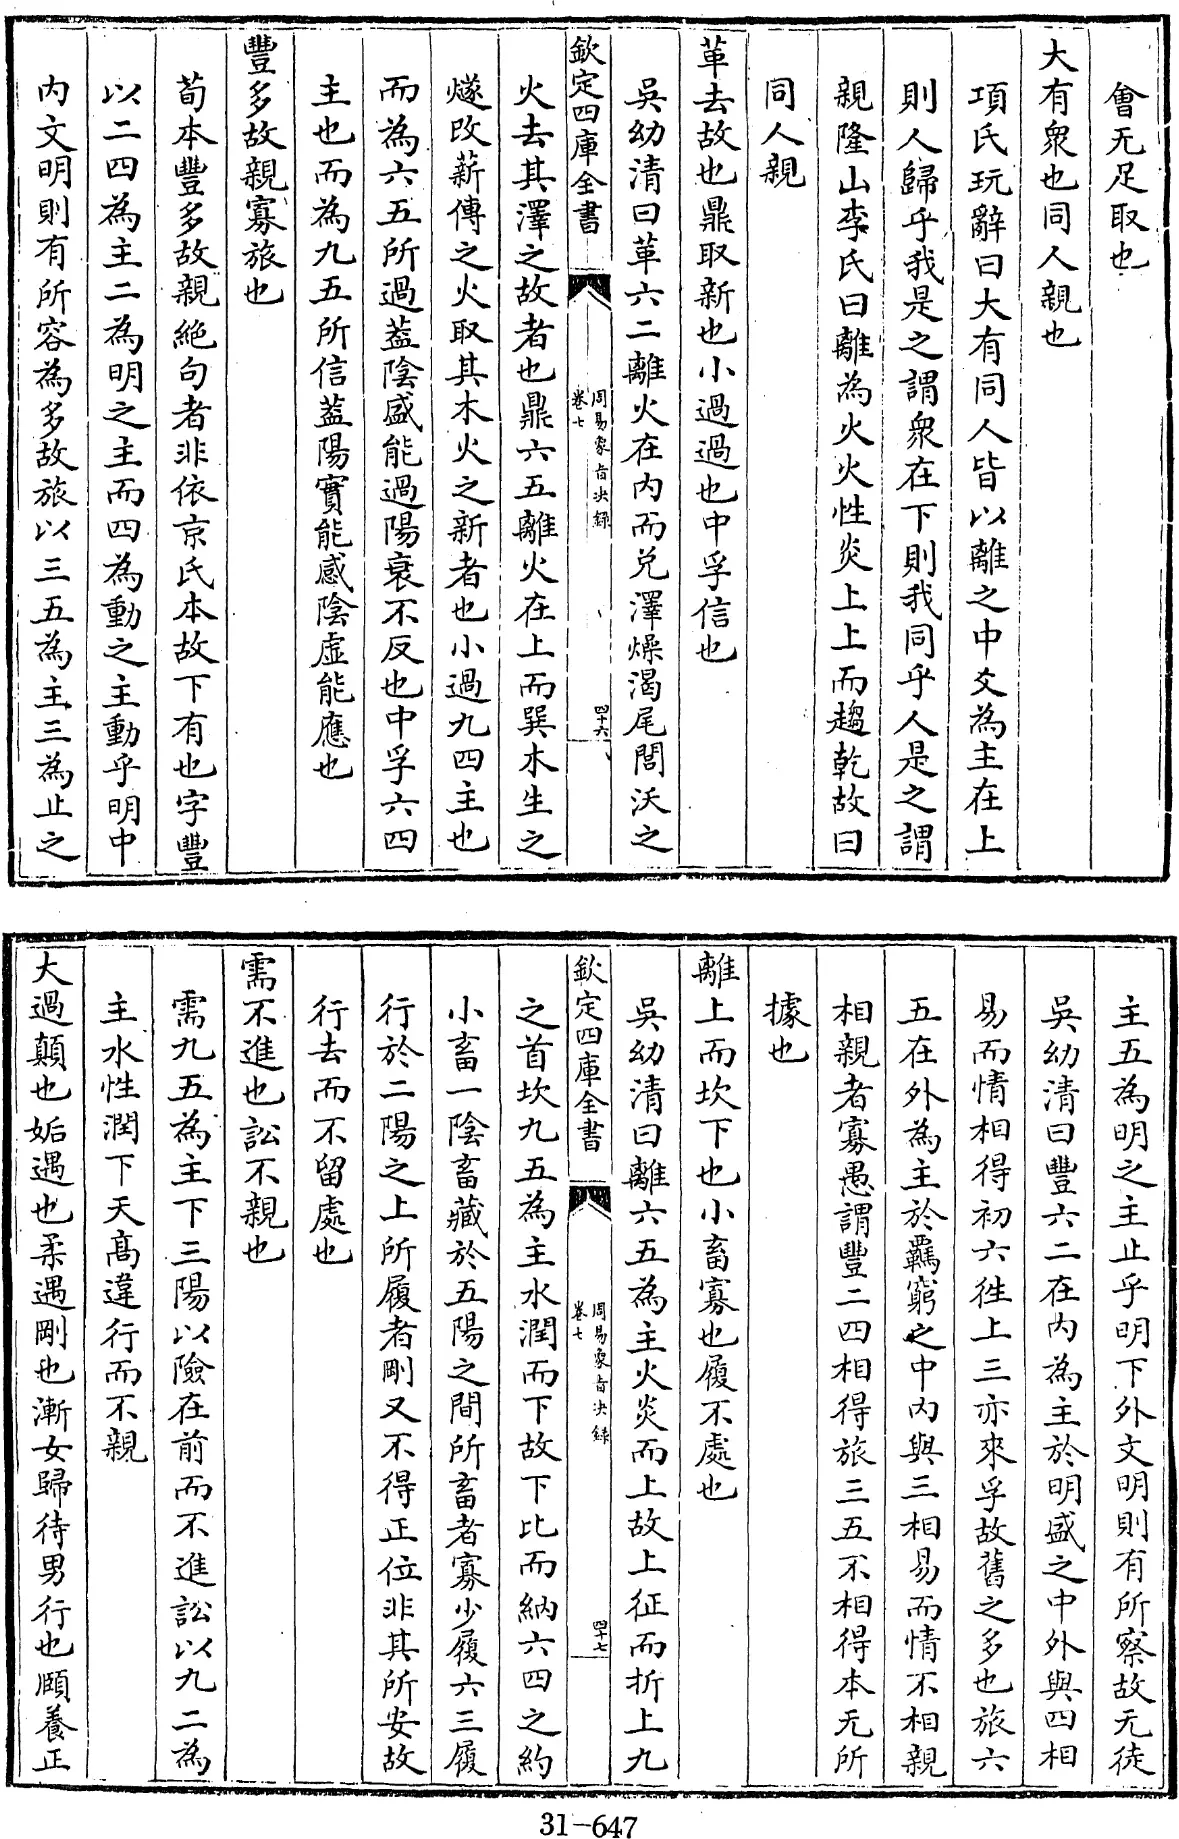 會无足取也
大有衆也同人親也
項氏玩辭曰大有同人皆以離之中爻為主在上
則人歸乎我是之謂衆在下則我同乎人是之謂
親隆山李氏曰離為火火性炎上上而趨乾故曰
同人親
革去故也鼎取新也小過過也中孚信也
吳幼清曰革六二離火在内而兑澤燥渴尾閭沃之
欽定四庫全書
周易象旨決録
卷七
四十六
火去其澤之故者也鼎六五離火在上而巽木生之
燧改薪傳之火取其木火之新者也小過九四主也
而為六五所過葢陰盛能過陽衰不反也中孚六四
主也而為九五所信葢陽實能感陰虚能應也
豐多故親寡旅也
荀本豐多故親絶句者非依京氏本故下有也字豐
以二四為主二為明之主而四為動之主動乎明中
内文明則有所容為多故旅以三五為主三為止之
主五為明之主止乎明下外文明則有所察故无徒
吳幼清曰豐六二在内為主於明盛之中外與四相
易而情相得初六徃上三亦來孚故舊之多也旅六
五在外為主於羈窮之中内與三相易而情不相親
相親者寡愚謂豐二四相得旅三五不相得本无所
據也
離上而坎下也小畜寡也履不處也
吳幼清曰離六五為主火炎而上故上征而折上九
欽定四庫全書
周易象旨決録
卷七
四十七
之首坎九五為主水潤而下故下比而納六四之約
小畜一陰畜藏於五陽之間所畜者寡少履六三履
行於二陽之上所履者剛又不得正位非其所安故
行去而不留處也
需不進也訟不親也
需九五為主下三陽以險在前而不進訟以九二為
主水性潤下天髙違行而不親
大過顛也姤遇也柔遇剛也漸女歸待男行也頤養正
31-647